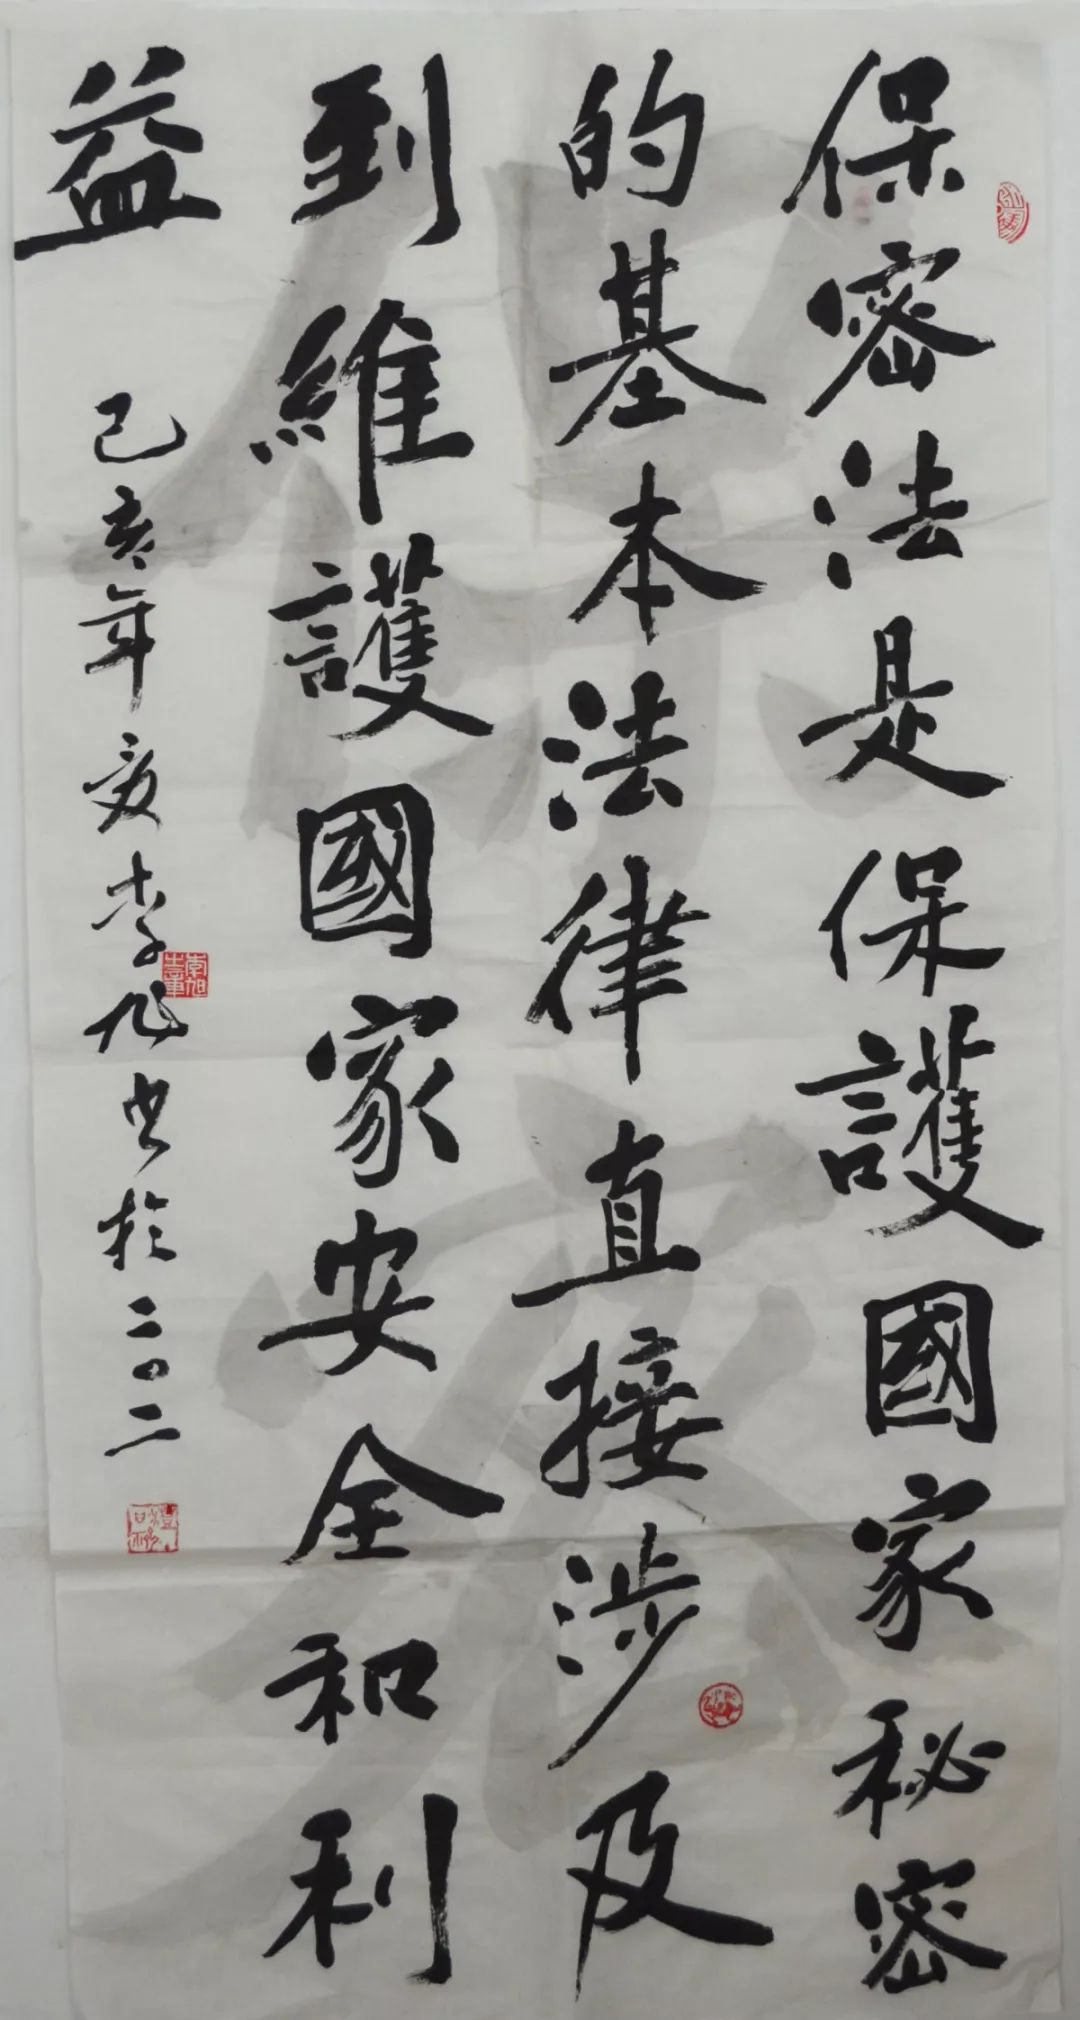 保密法是保護國家秘密
的基本法律直接涉及
到維護國家安全和利
益
己亥年夏李旭书於二〇二